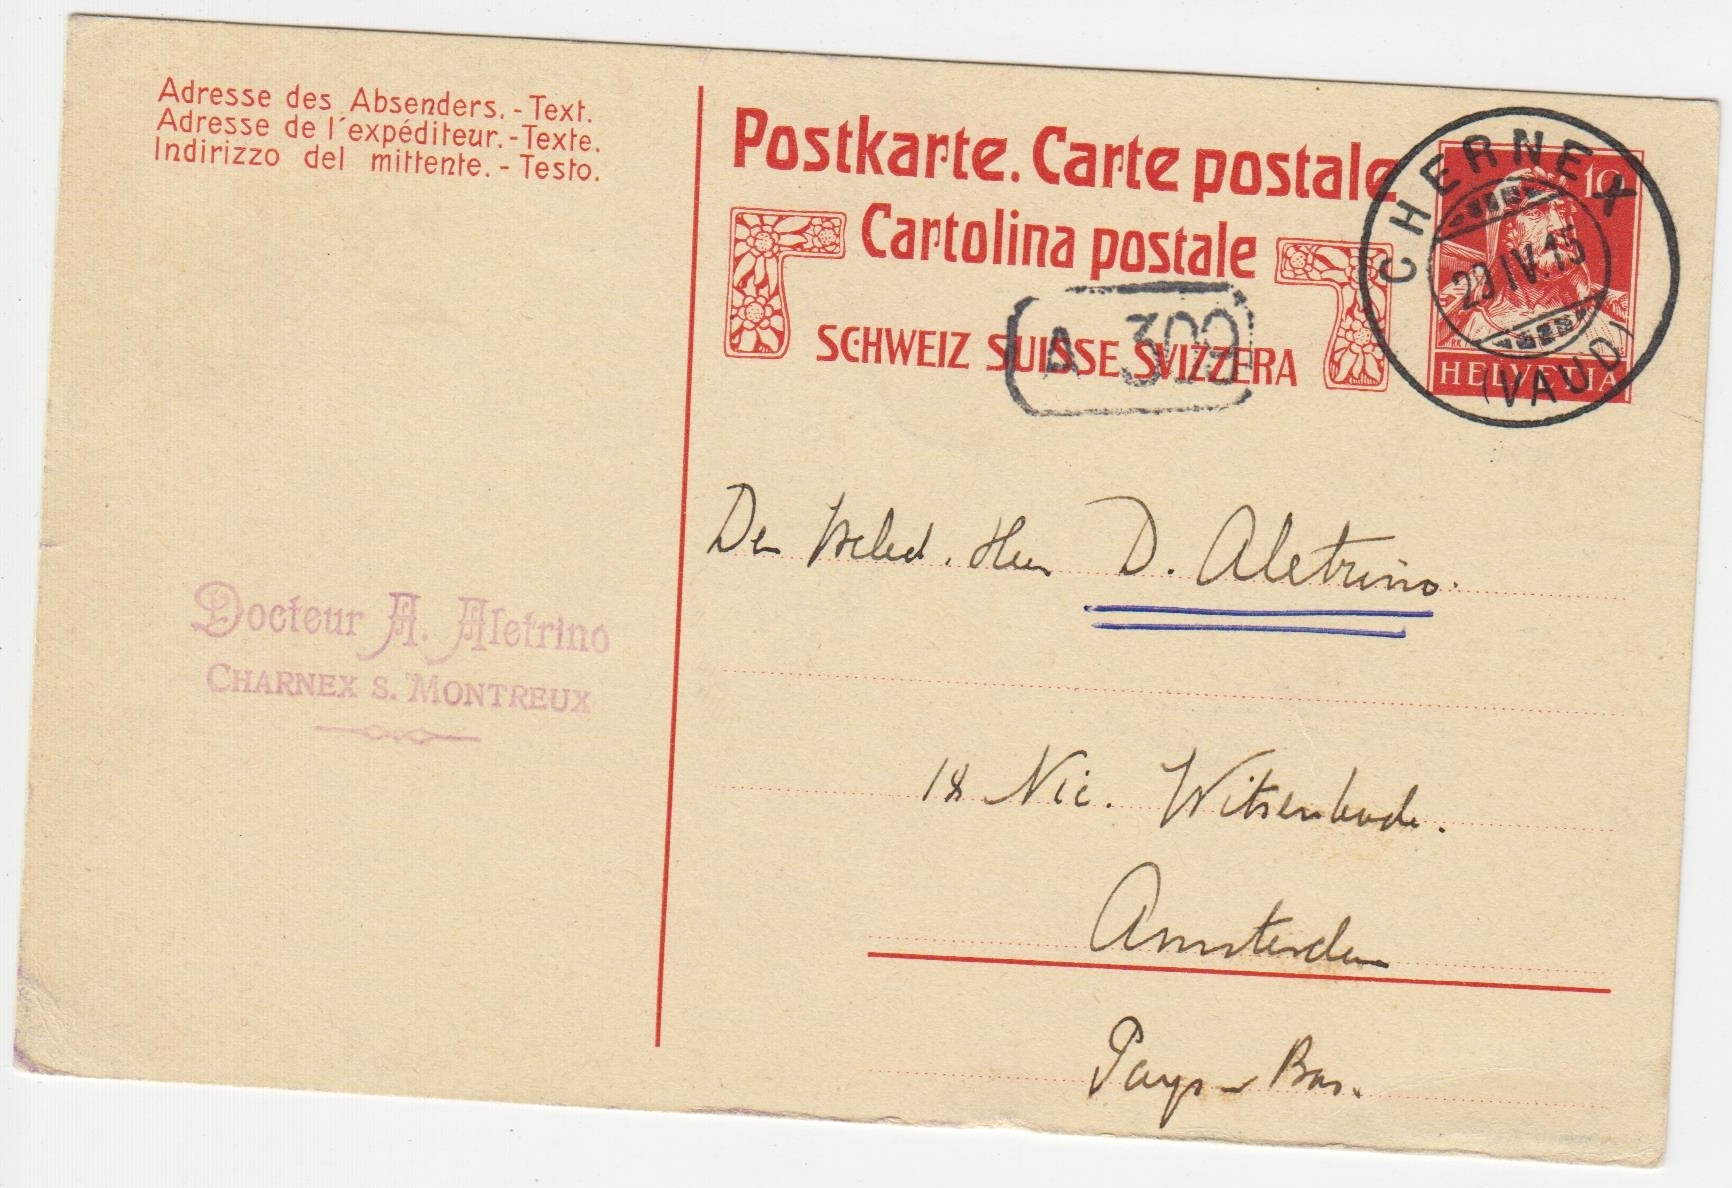 Adresse des Absenders. - Text.
Adresse de l'expéditeur. - Texte.
Indirizzo del mittente. - Testo.
Postkarte. Carte postale
Cartolina postale
SCHWEIZ SUISSE SVIZZERA
A 309
CHERNEX
10
29 IV 15
(VAUD)
HELVETIA
Docteur A. Aletrino
CHARNEX S. MONTREUX
Den Weled. Heer D. Aletrino.
18 Nic. Witsenkade.
Amsterdam
Pays-Bas.